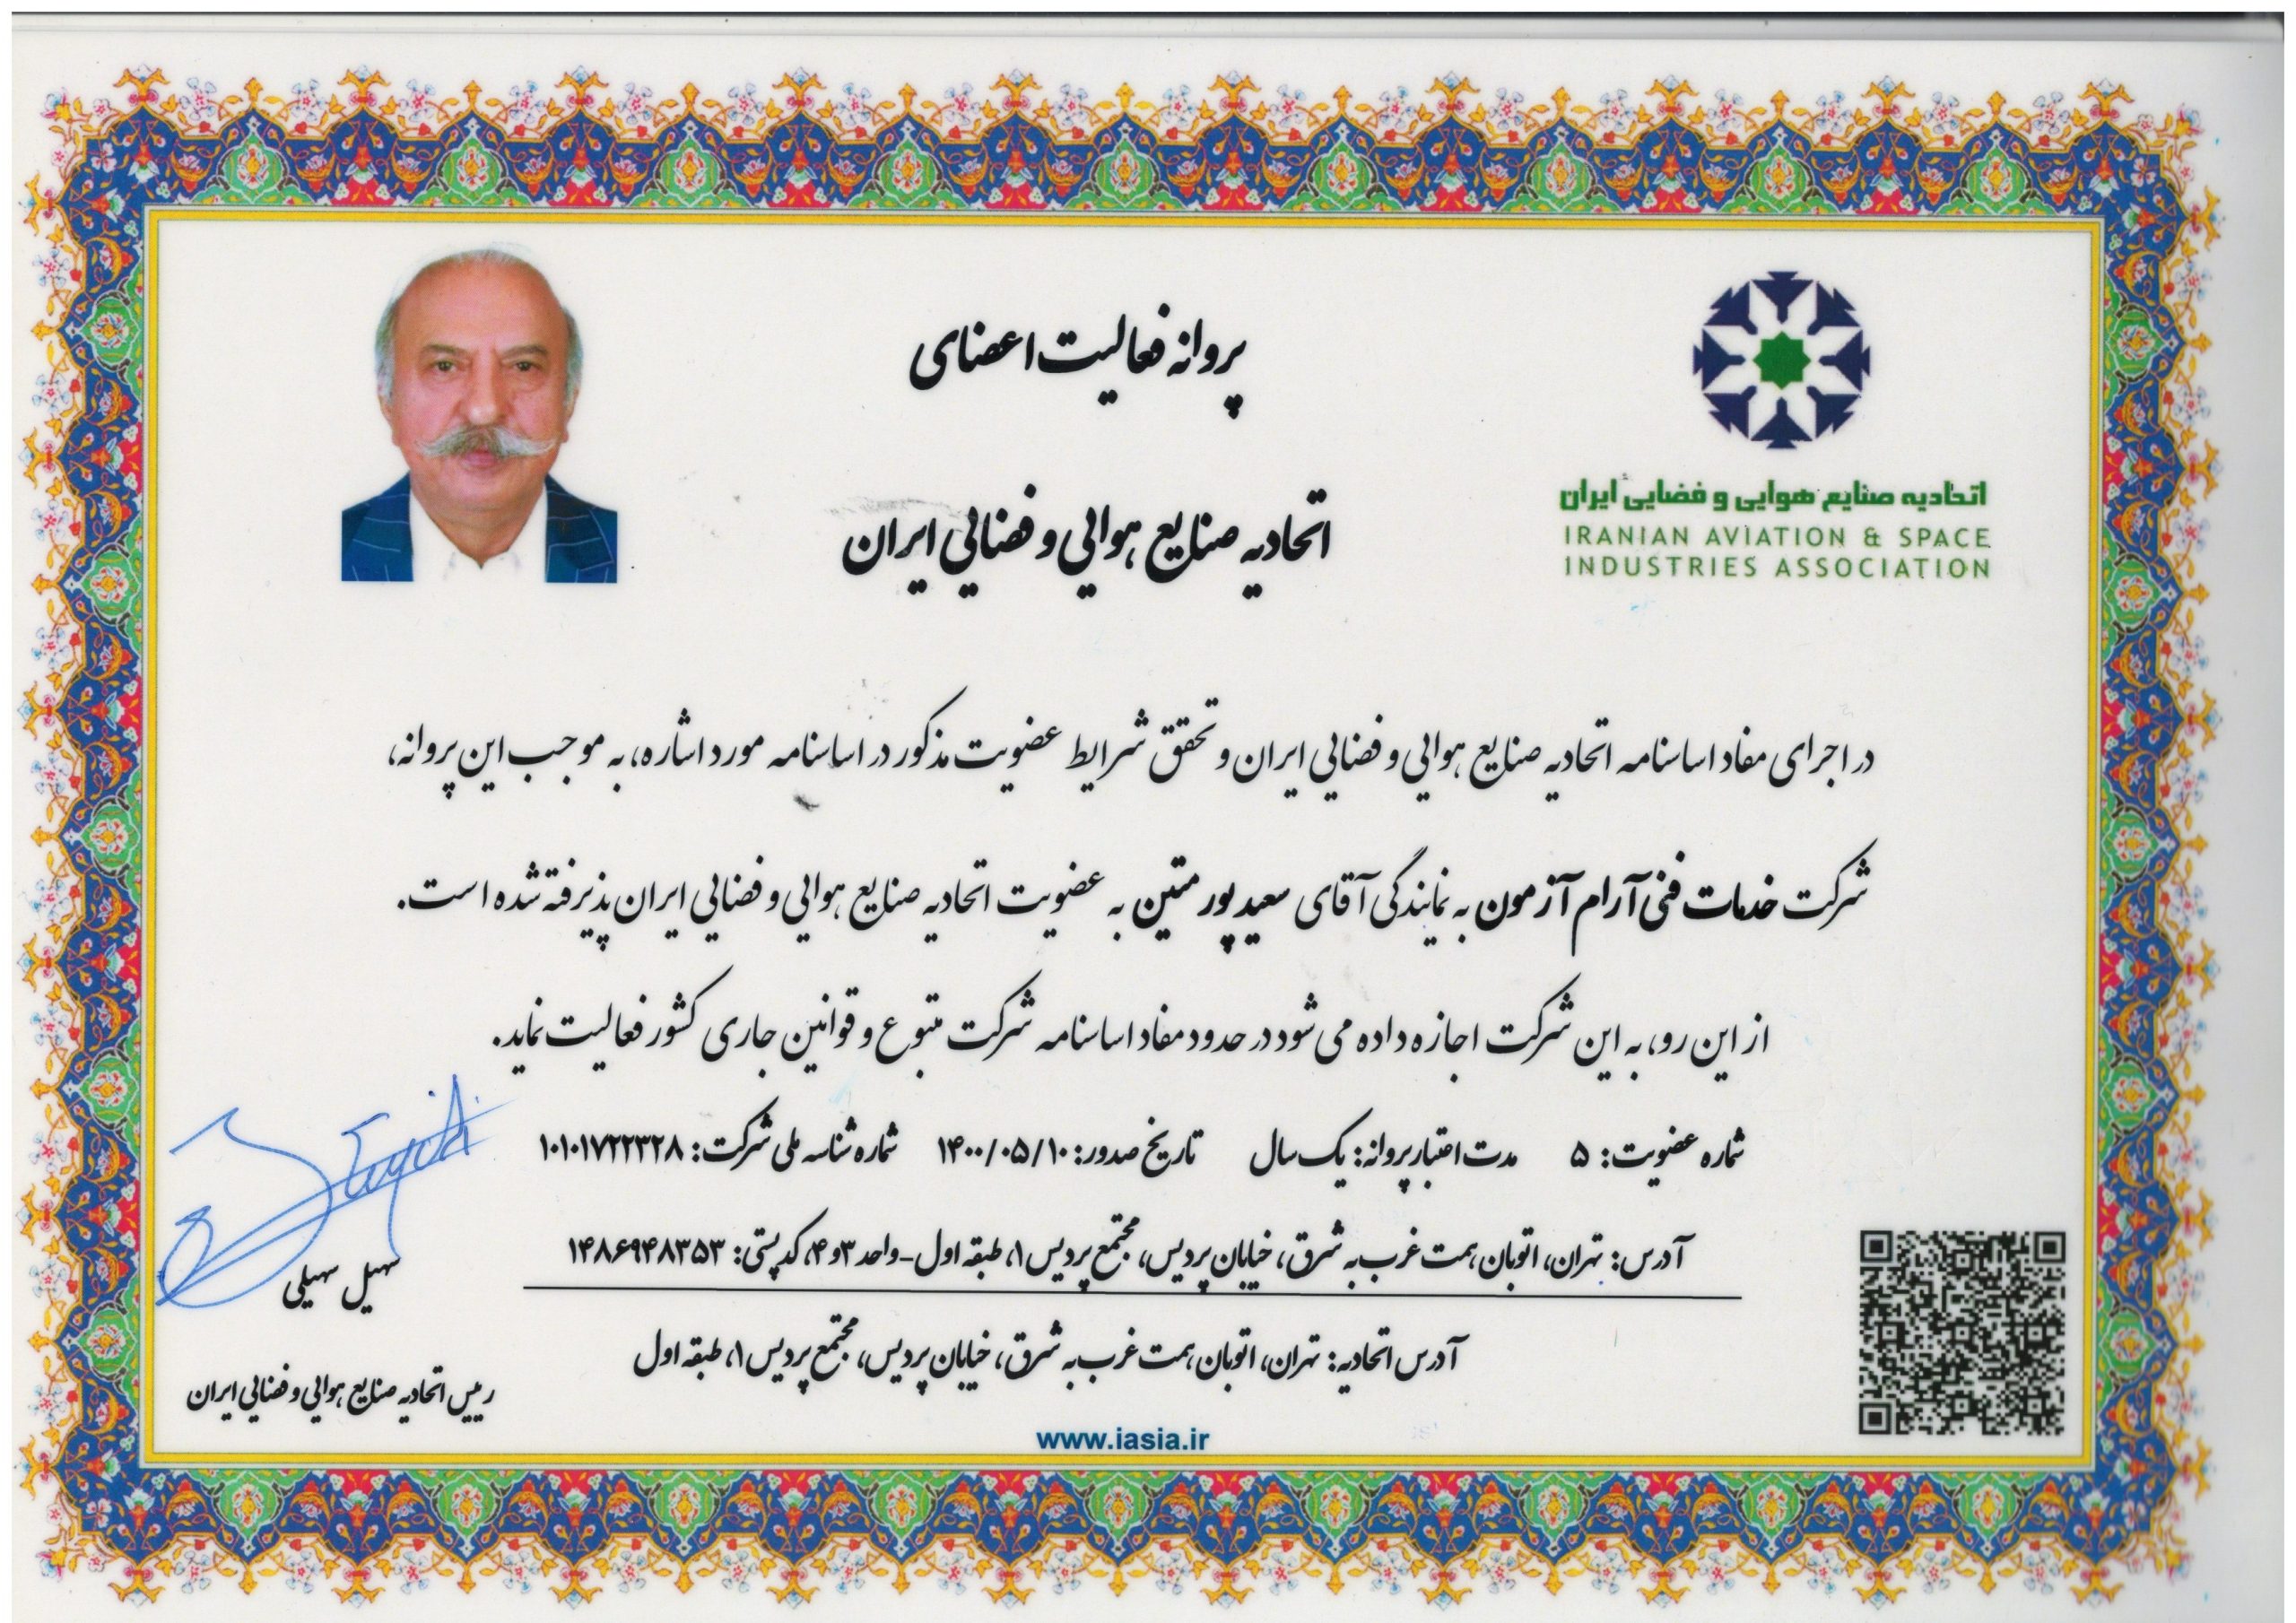 پروانه فعالیت اعضای
اتحادیه صنایع هوایی و فضایی ایران
اتحادیه صنایع هوایی و فضایی ایران
IRANIAN AVIATION & SPACE
INDUSTRIES ASSOCIATION
در اجرای مفاد اساسنامه اتحادیه صنایع هوایی و فضایی ایران و تحقق شرایط عضویت مذکور در اساسنامه مورد اشاره، به موجب این پروانه،
شرکت خدمات فنی آرام آزمون به نمایندگی آقای سعید پور متین به عضویت اتحادیه صنایع هوایی و فضایی ایران پذیرفته شده است.
از این رو، به این شرکت اجازه داده می شود در حدود مفاد اساسنامه شرکت متبوع و قوانین جاری کشور فعالیت نماید.
شماره عضویت: ۵ مدت اعتبار پروانه: یک سال تاریخ صدور: ۱۴۰۰/۰۵/۱۰ شماره شناسه ملی شرکت: ۱۰۱۰۱۷۲۲۳۲۸
آدرس: تهران، اتوبان همت غرب به شرق، خیابان پردیس، مجتمع پردیس ۱، طبقه اول-واحد ۳و۴، کد پستی: ۱۴۸۶۹۴۸۳۵۳
آدرس اتحادیه: تهران، اتوبان همت غرب به شرق، خیابان پردیس، مجتمع پردیس ۱، طبقه اول
www.iasia.ir
سهیل سهیلی
رییس اتحادیه صنایع هوایی و فضایی ایران